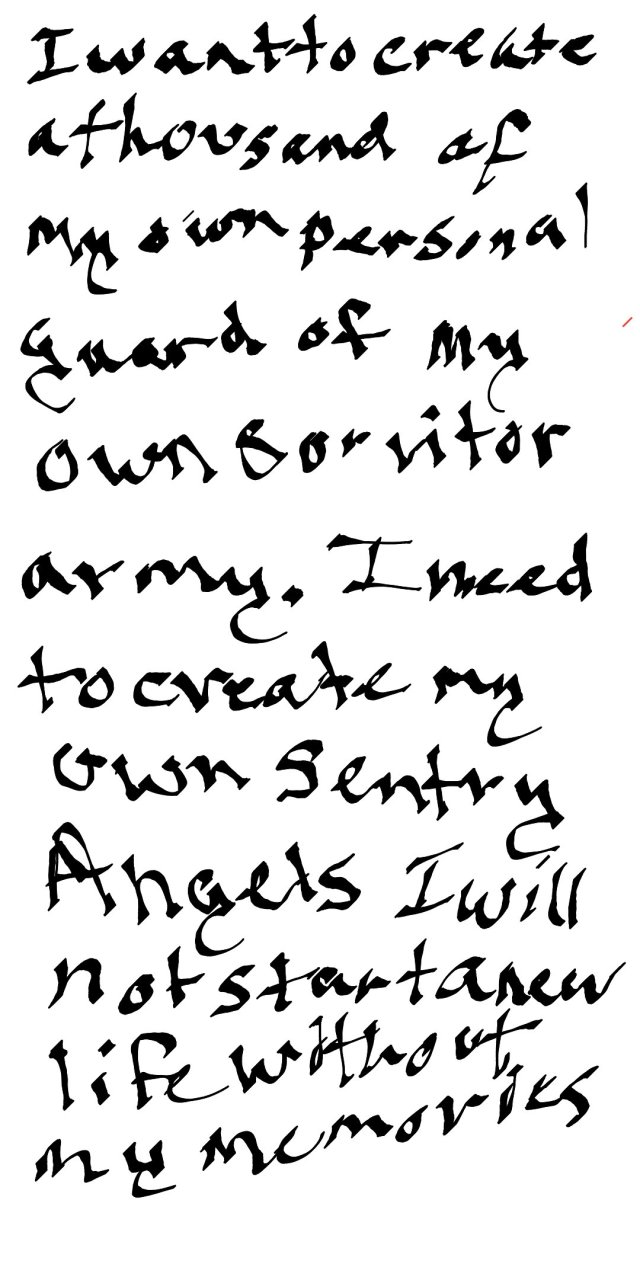 I want to create
a thousand of
my own personal
guard of my
own Sorvitor
army. I need
to create my
own Sentry
Angels I will
not start a new
life without
my memories